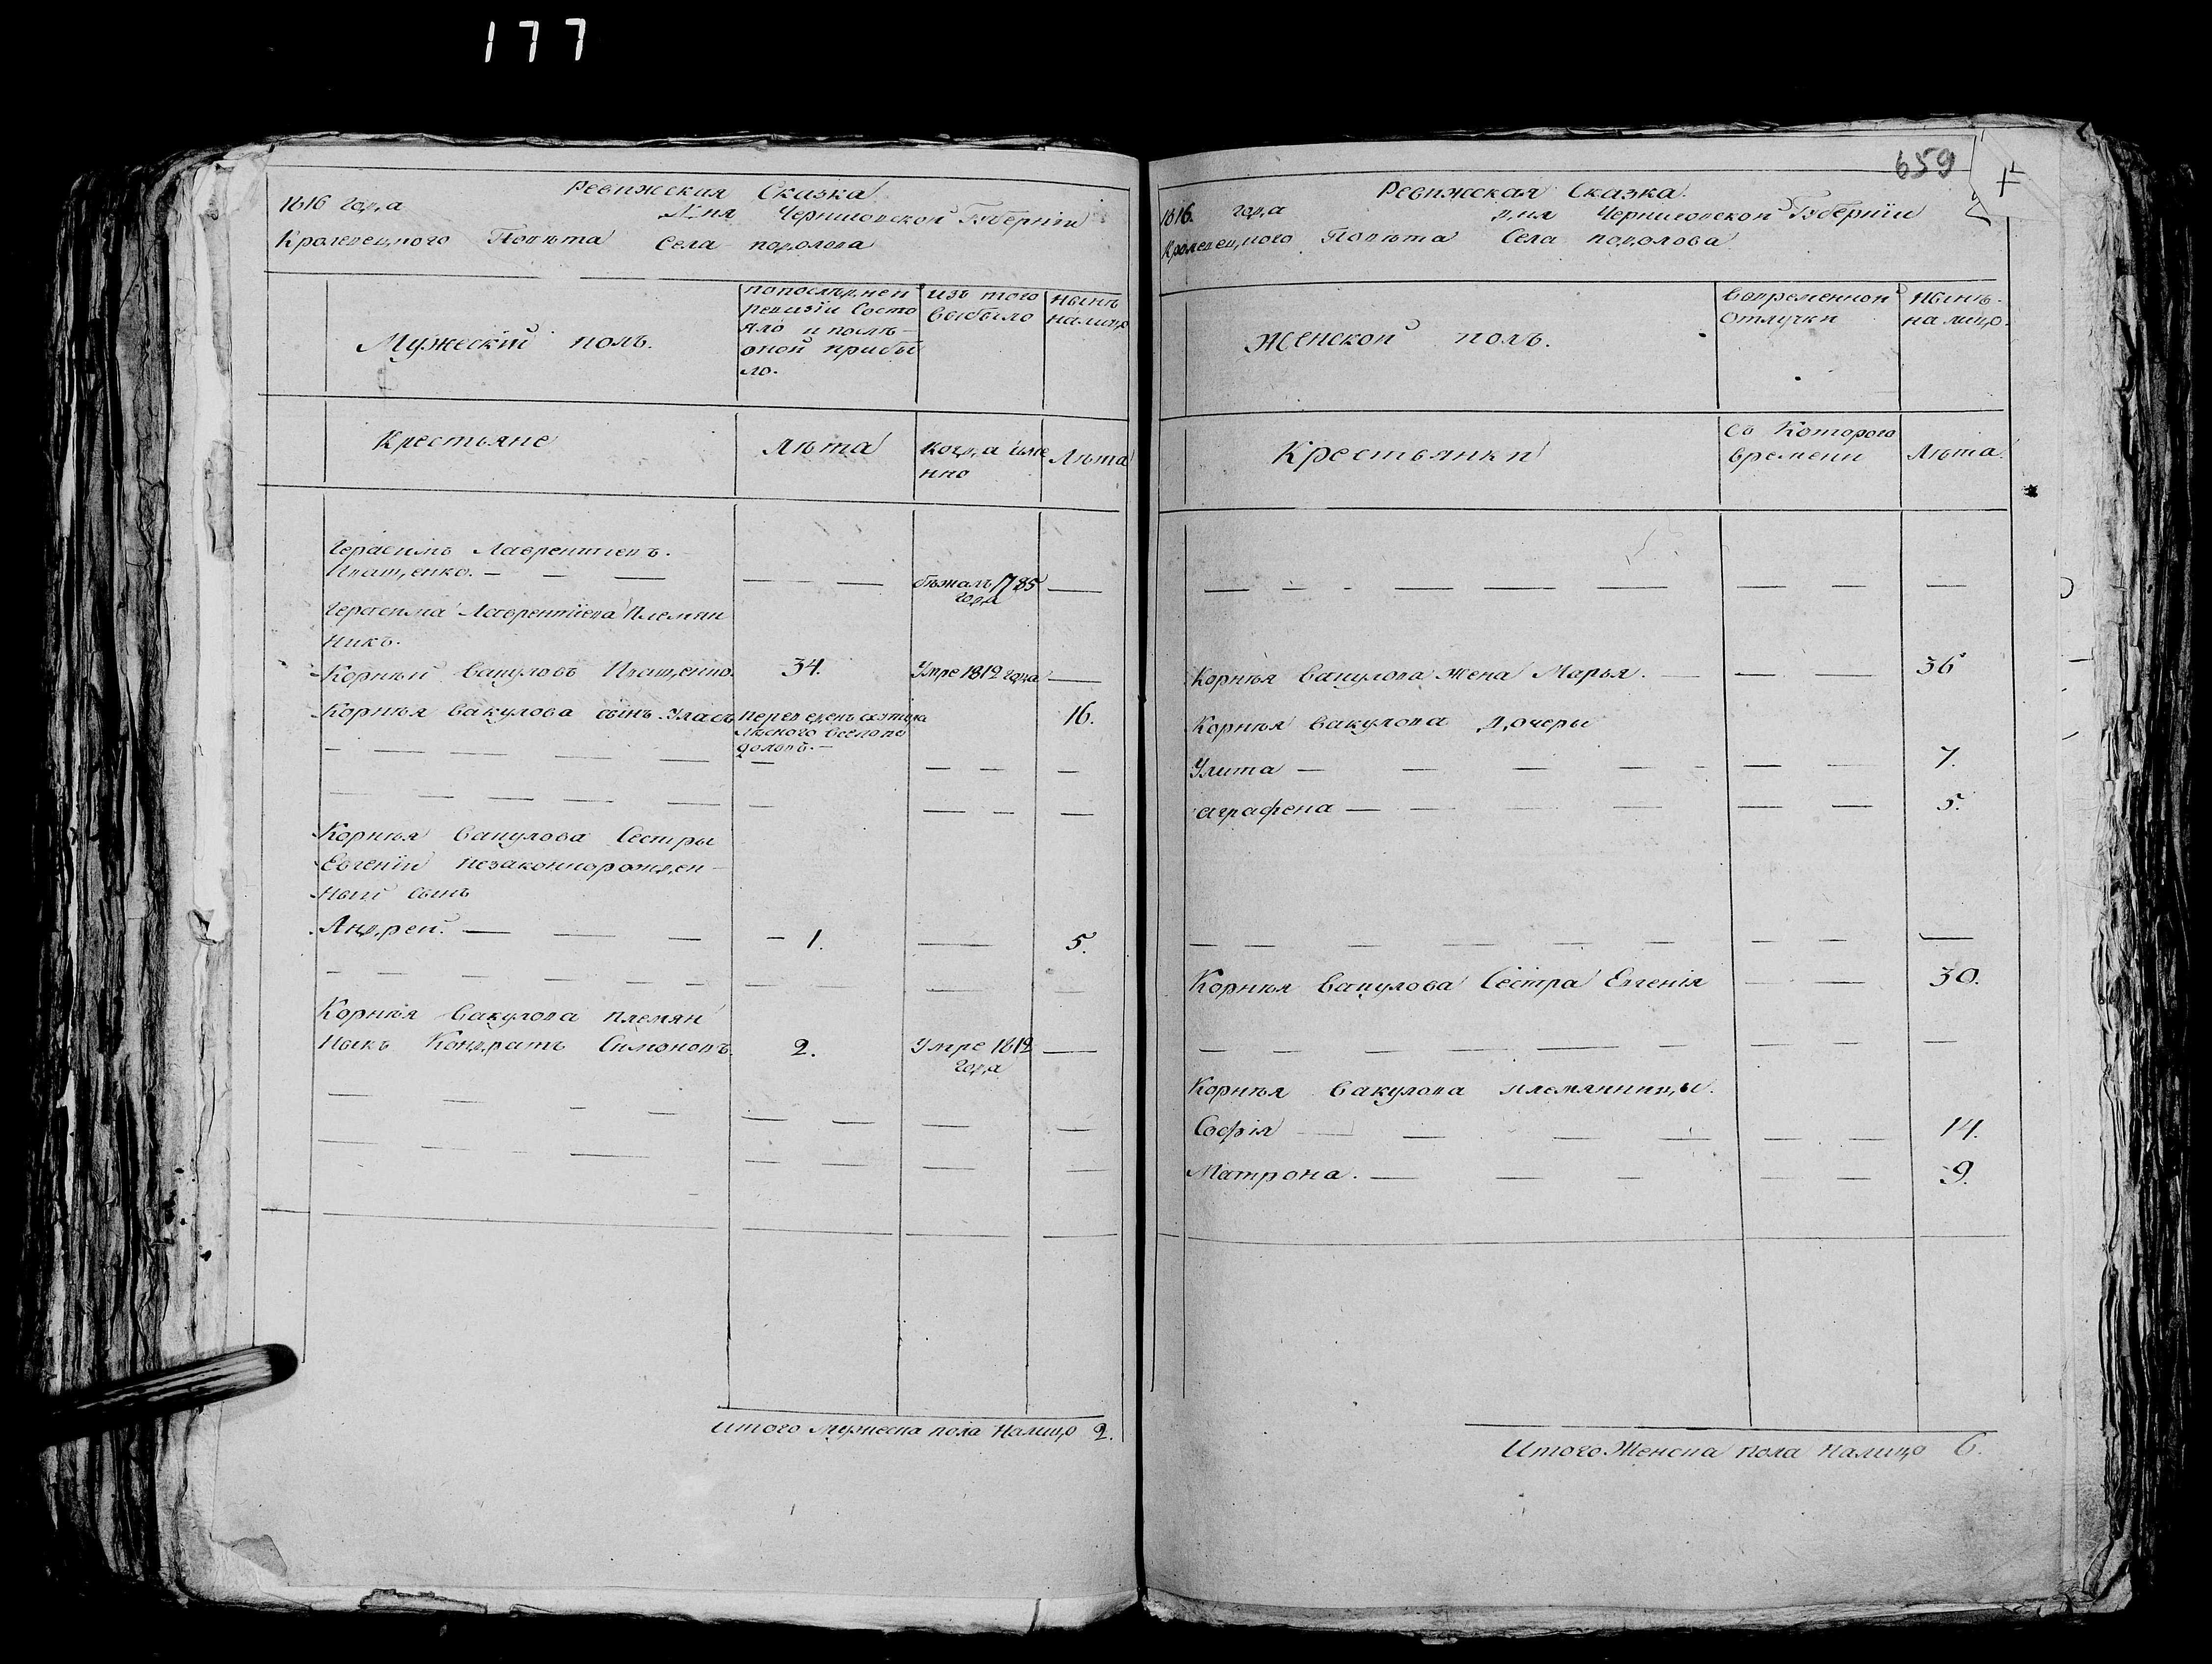 177
Ревижская Сказка
1816 года Дня Черниговской Губернїи
Кролевецкого Повѣта Села подолова
Мужескїй полъ.
попослѣдней
ревизїи Состо
яло и послѣ
оной прибы
ло.
изъ того
выбыло
нынѣ
налицо
Крестьяне
Лѣта
когда име
нно
Лѣта
Герасимъ Лаврентїевъ.
бѣжалъ 1785
года
Герасима Лаврентїева Племян
никъ.
Корнѣй Вакуловъ 34. Умре 1812 года
Корнѣя Вакулова сынъ Уласъ переведенъ 16.
Корнѣя Вакулова Сестры
Евгенїи незаконнорожден
ный сынъ
Андрей. 1. 5.
Корнѣя Вакулова племян
никъ Кондратъ Симоновъ. 2. Умре 1812
года
итого мужеска пола налицо 2.
659
Ревижская Сказка.
1816. года дня Черниговской Губернїи
Кролевецкого Повѣта Села подолова
Женской полъ.
вовременной
отлучки
нынѣ
налицо.
Крестьянки
съ Которого
времени
Лѣта.
Корнѣя Вакулова жена Марья. 36
Корнѣя Вакулова дочеры
Улита 7.
аграфена 5.
Корнѣя Вакулова Сестра Евгенїя 30.
Корнѣя Вакулова племянницы.
Софїя 14.
Матрона. 9.
Итого Женска пола налицо 6.